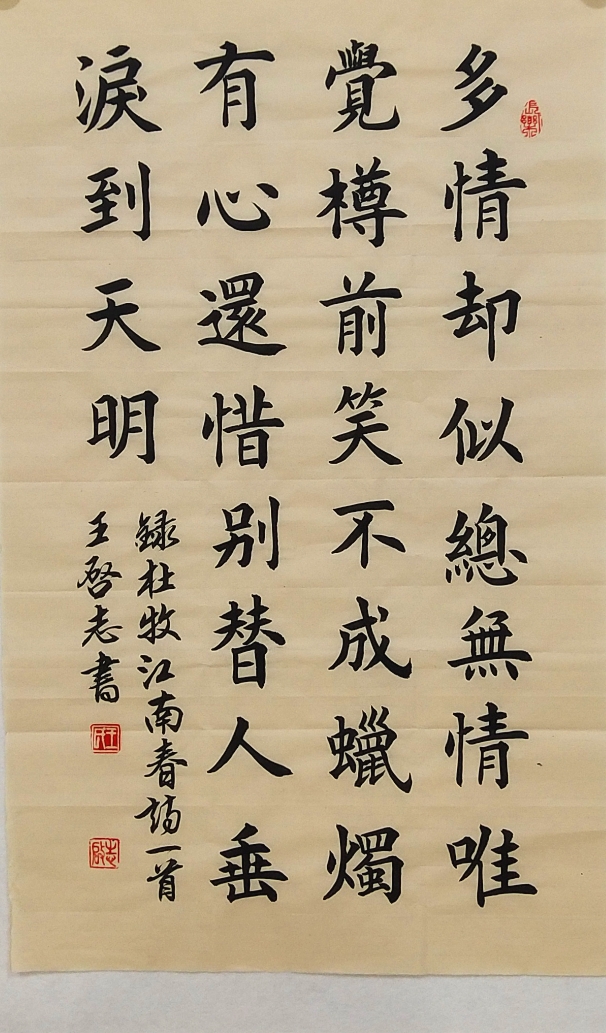 多情却似總無情唯
覺樽前笑不成蠟燭
有心還惜别替人垂
淚到天明
録杜牧江南春詩一首
王啓志書